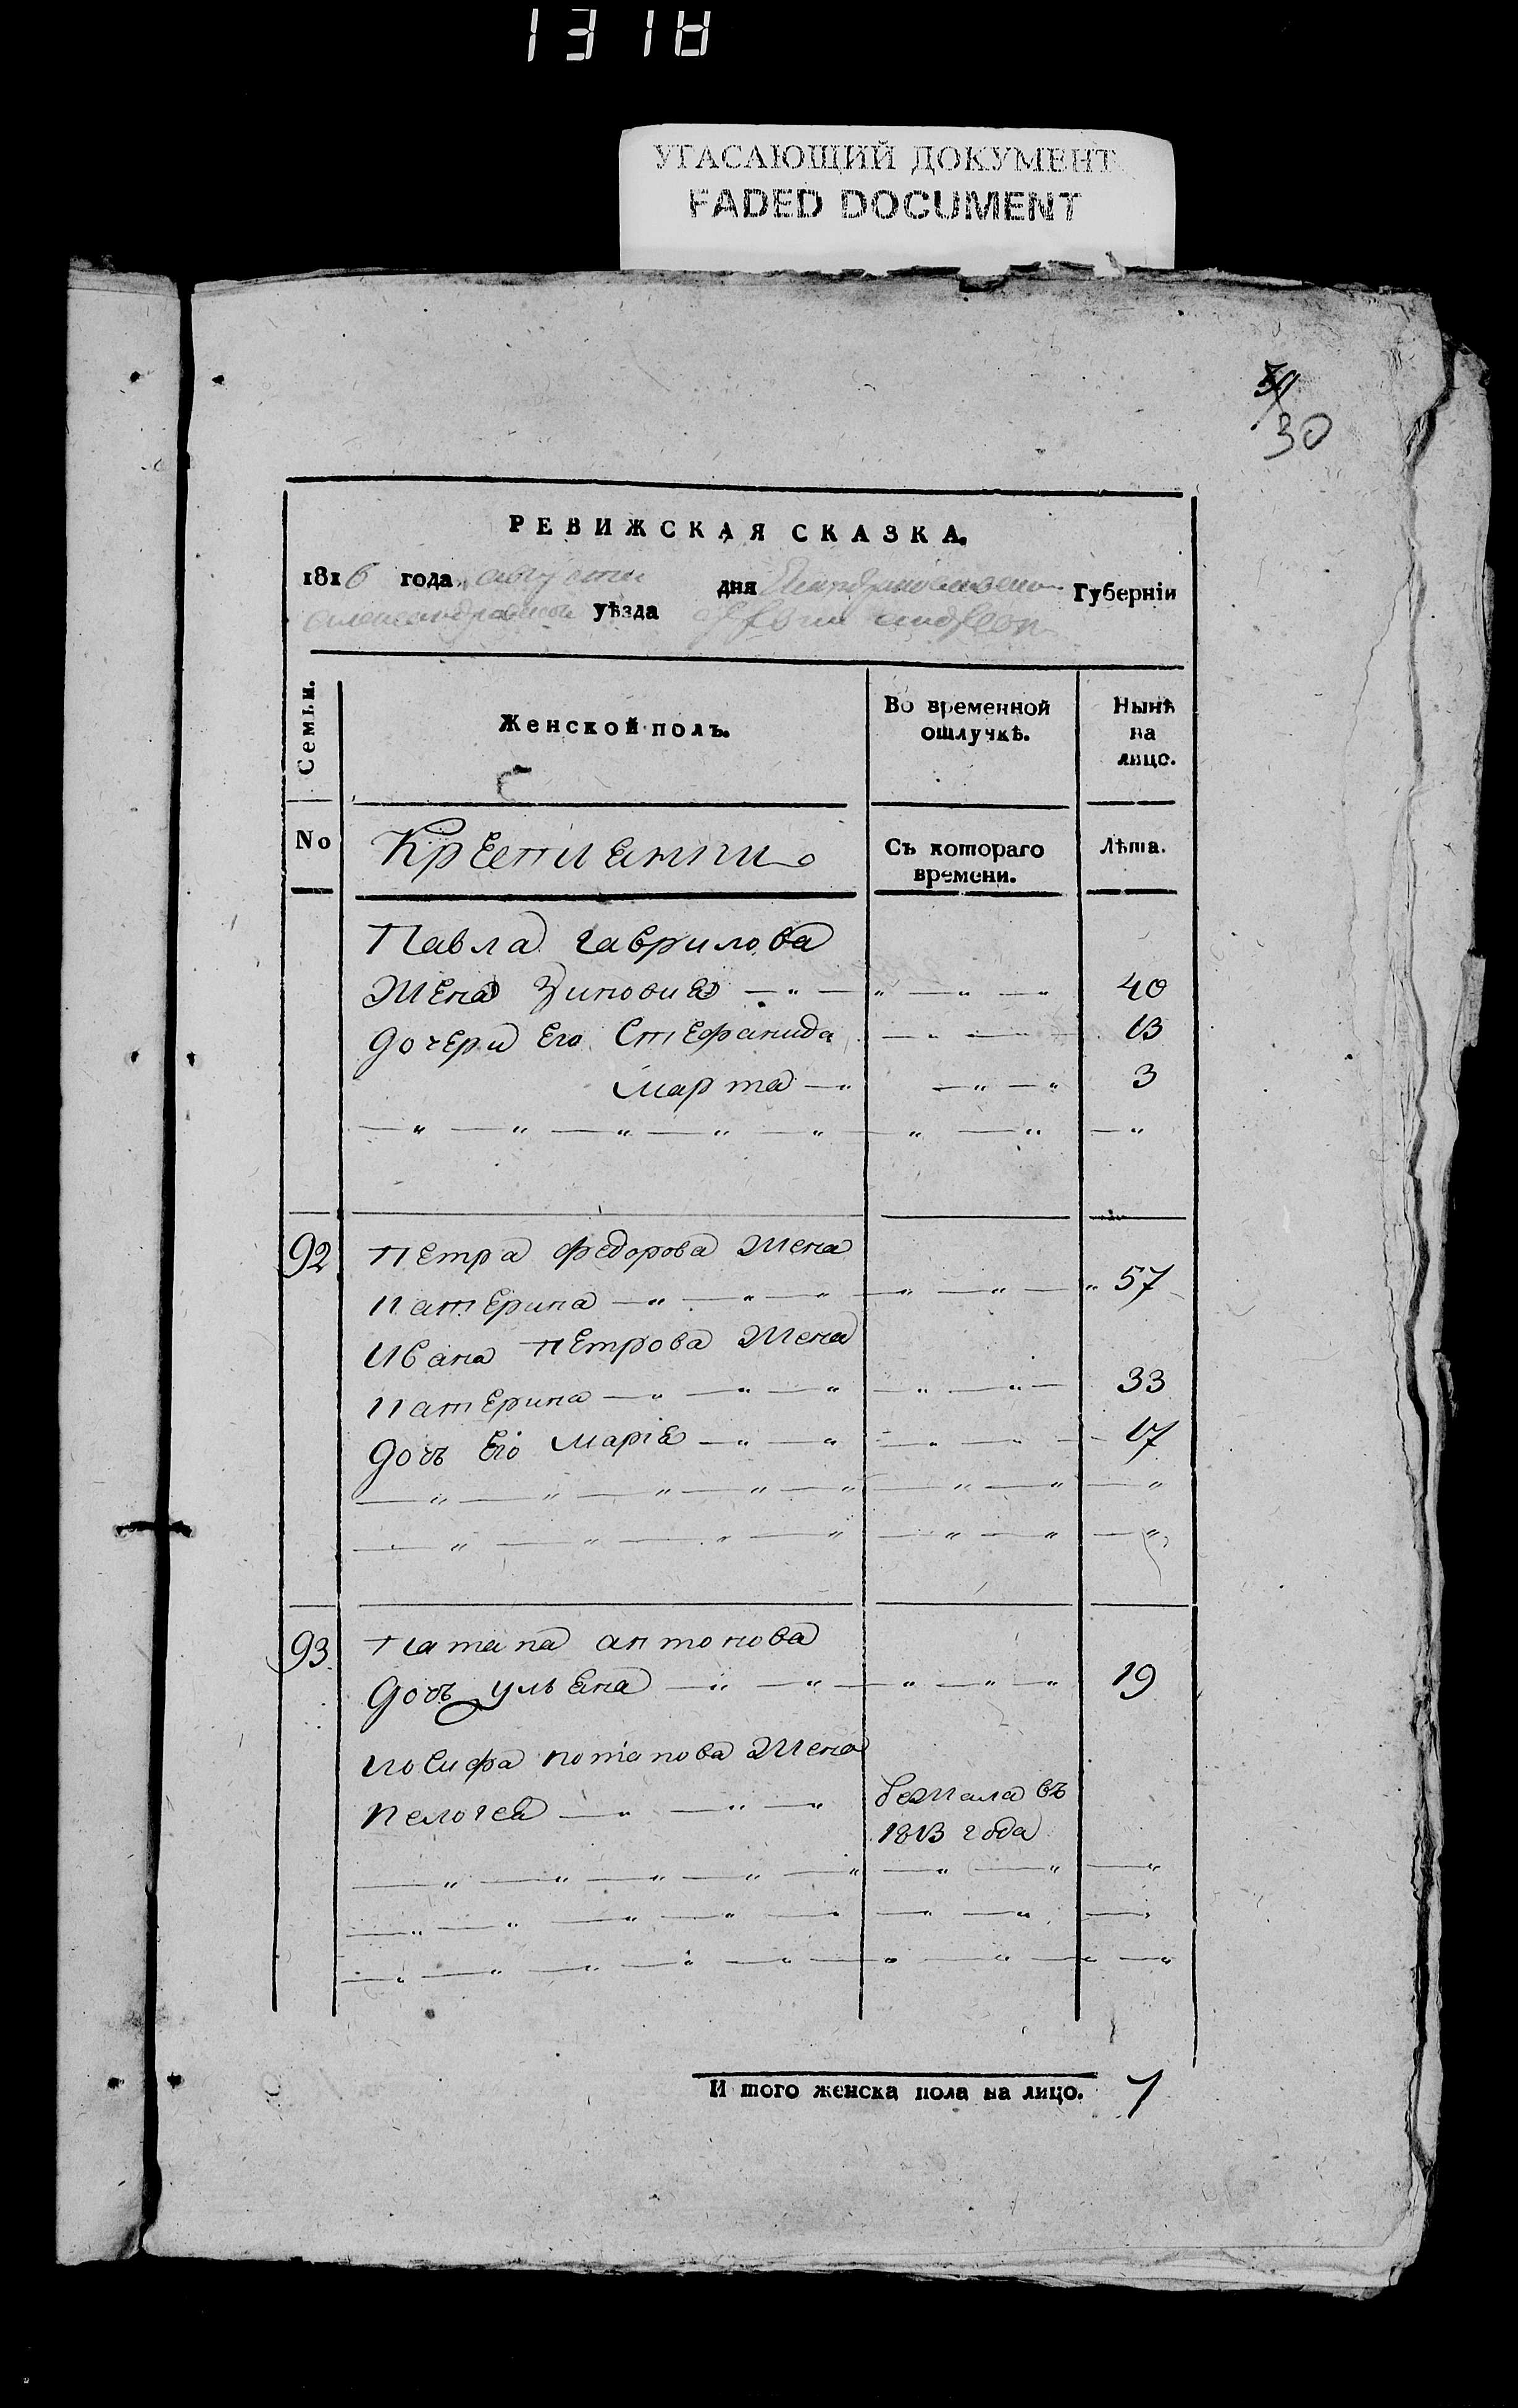 1318
УГАСАЮЩИЙ ДОКУМЕНТ
FADED DOCUMENT
30
РЕВИЖСКАЯ СКАЗКА.
1816 года августа дня Екатеринославской Губерніи
александрійской уѣзда
Семьи.
Женской полъ.
Во временной отлучкѣ.
Нынѣ на лицо.
No
Крестіянки
Съ котораго времени.
Лѣта.
Павла гаврилова
жена Зиновия 40
дочери его Стефанида 13
марта 3
92 петра федорова жена
катерина 57
Ивана петрова жена
катерина 33
дочъ его маріа 17
93 патапа антонова
дочъ ульяна 19
иосифа потапова жена
пелагея бежала въ
1813 года
И того женска пола на лицо. 7